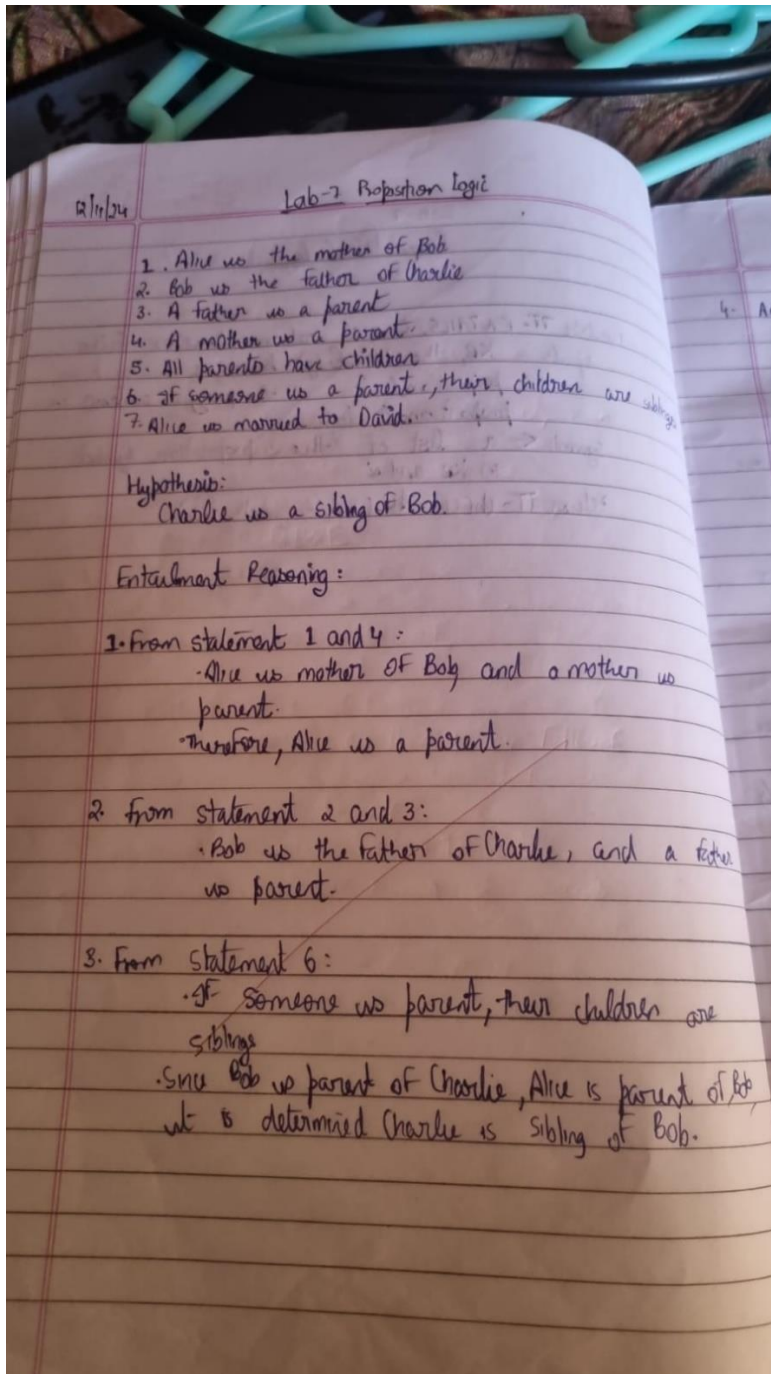 12/11/24
Lab-7 Propostion logic
1. Alice is the mother of Bob
2. Bob is the father of Charlie
3. A father is a parent
4. A mother is a parent.
5. All parents have children
6. If someone is a parent, their children are siblings
7. Alice is married to David.
Hypothesis:
Charlie is a sibling of Bob.
Entailment Reasoning:
1. From statement 1 and 4:
·Alice is mother of Bob and a mother is
parent.
·Therefore, Alice is a parent.
2. from statement 2 and 3:
·Bob is the father of Charlie, and a father
is parent.
3. From statement 6:
·If someone is parent, their children are
siblings
·Since Bob is parent of Charlie, Alice is parent of Bob,
it is determined Charlie is sibling of Bob.
4.